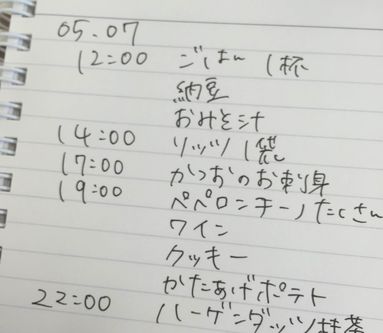 05.07
12:00 ごはん 1杯
納豆
おみそ汁
14:00 リッツ 1袋
17:00 かつおのお刺身
19:00 ペペロンチーノたくさん
ワイン
クッキー
かたあげポテト
22:00 ハーゲンダッツ抹茶